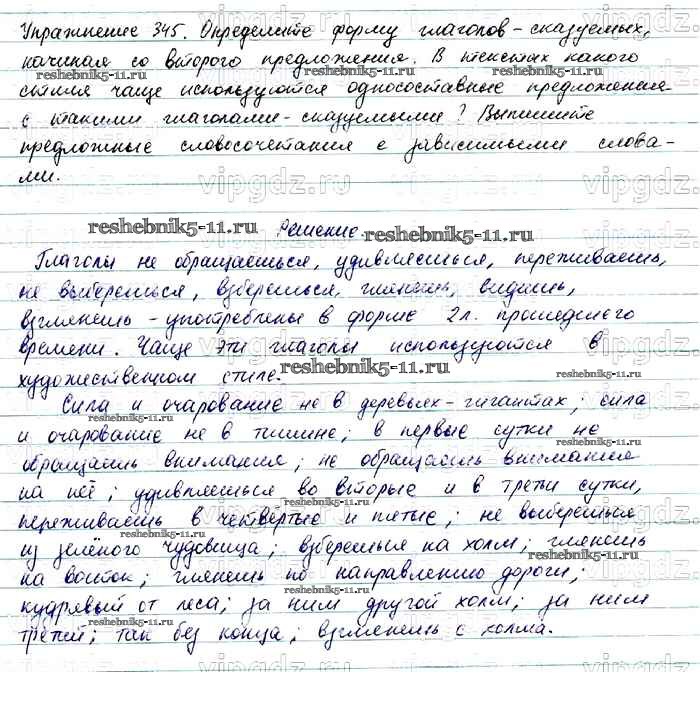 Упражнение 345. Определите форму глаголов-сказуемых,
начиная со второго предложения. В текстах какого
стиля чаще используются односоставные предложения
с такими глаголами-сказуемыми? Выпишите
предложные словосочетания с зависимыми слова-
ми.
Решение.
Глаголы не обращаешься, удивляешься, переживаешь,
не выберешься, взберешься, глянешь, видишь,
взглянешь - употреблены в форме 2л. прошедшего
времени. Чаще эти глаголы используются в
художественном стиле.
Сила и очарование не в деревьях-гигантах; сила
и очарование не в тишине; в первые сутки не
обращаешь внимания; не обращаешь внимания
на неё; удивляешься во вторые и в третьи сутки,
переживаешь в четвёртые и пятые; не выберешься
из зелёного чудовища; взберешься на холм; глянешь
на восток; глянешь по направлению дороги;
кудрявый от леса; за ним другой холм; за ним
третий; так без конца; взглянешь с холма.
reshebnik5-11.ru
vipgdz.ru